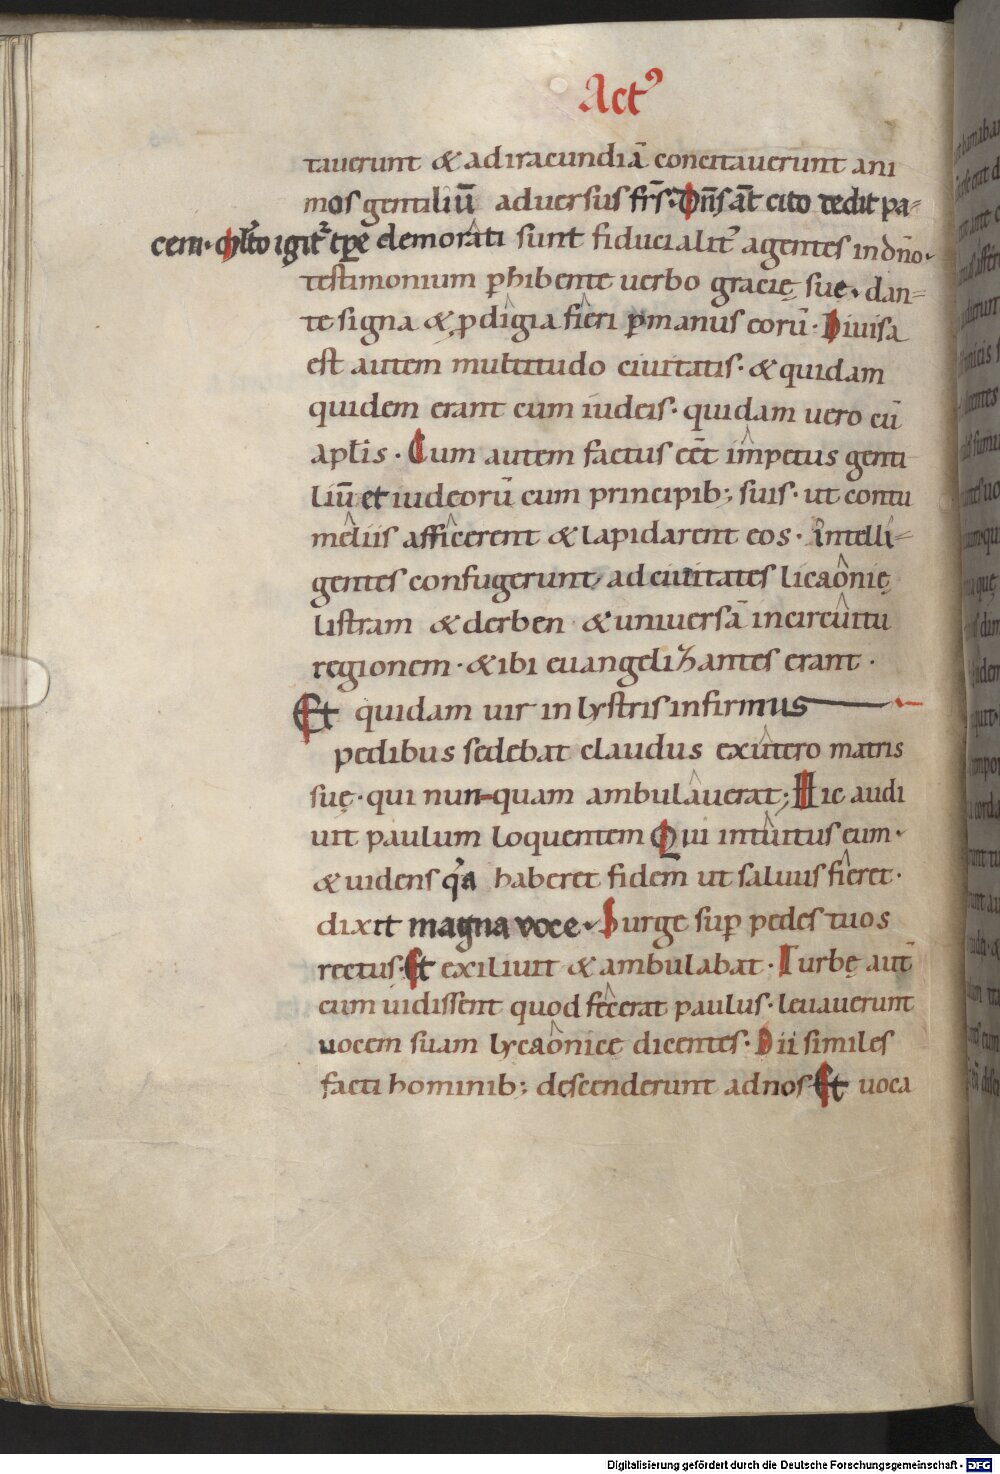 Actꝰ
tauerunt & ad iracundiā concitauerunt ani
mos gentiliū aduersus fr̄s. Dn̄s aūt cito dedit pa-
cem. Mlto igit᷑ tp̄e demorati sunt fiducialit᷑ agentes in dn̄o.
testimonium ꝑhibente uerbo gracię suę. dan-
te signa & ꝓdigia fieri ꝑ manus eorū. Diuisa
est autem multitudo ciuitatis. & quidam
quidem erant cum iudeis. quidam uero cū
aplis. Cum autem factus eēt impetus genti
liū et iudeorū cum principib; suis. ut contu
meliis afficerent & lapidarent eos. intelli-
gentes confugerunt ad ciuitates licaonię
listram & derben & uniuersā in circuitu
regionem. & ibi euangelizantes erant.
Et quidam uir in lystris infirmus
pedibus sedebat claudus ex utero matris
suę. qui nunquam ambulauerat; Hic audi
uit paulum loquentem Qui intuitus eum.
& uidens qa haberet fidem ut saluus fieret.
dixit magna voce. Surge suꝑ pedes tuos
rectus. Et exiliuit & ambulabat. Turbę aut̄
cum uidissent quod fecerat paulus. leuauerunt
uocem suam lycaonice dicentes. Dii similes
facti hominib; descenderunt ad nos Et uoca
Digitalisierung gefördert durch die Deutsche Forschungsgemeinschaft - DFG